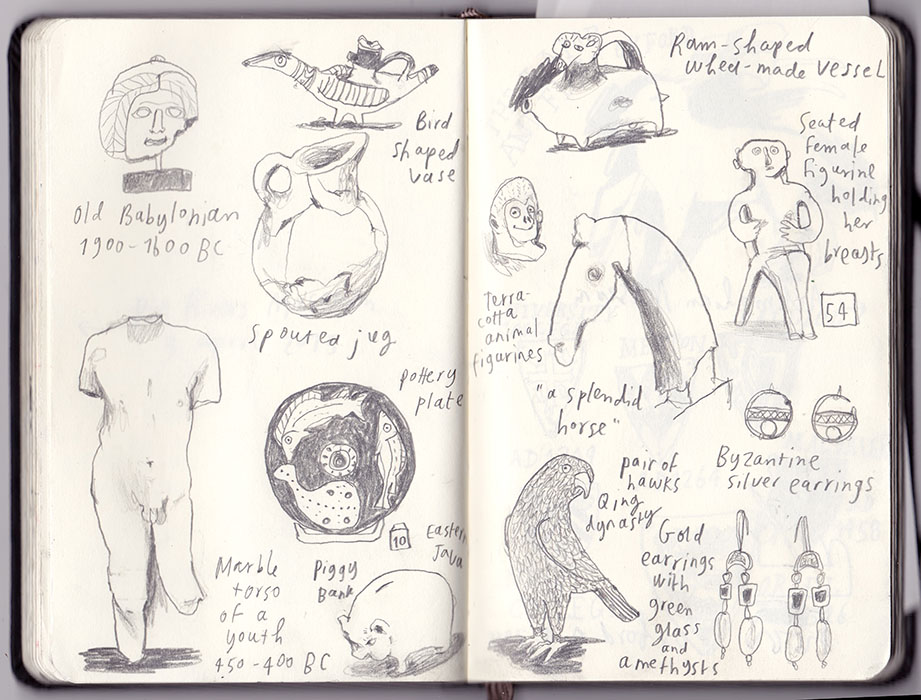 Old Babylonian
1900-1600 BC
Bird
shaped
vase
Spouted jug
pottery
plate
10
Marble
torso
of a
youth
450-400 BC
Eastern
Java
Piggy
Bank
Ram-shaped
wheel-made vessel
Seated
female
figurine
holding
her
breasts
54
Terra-
cotta
animal
figurines
"a splendid
horse"
Byzantine
silver earrings
pair of
hawks
Qing
dynasty
Gold
earrings
with
green
glass
and
amethysts